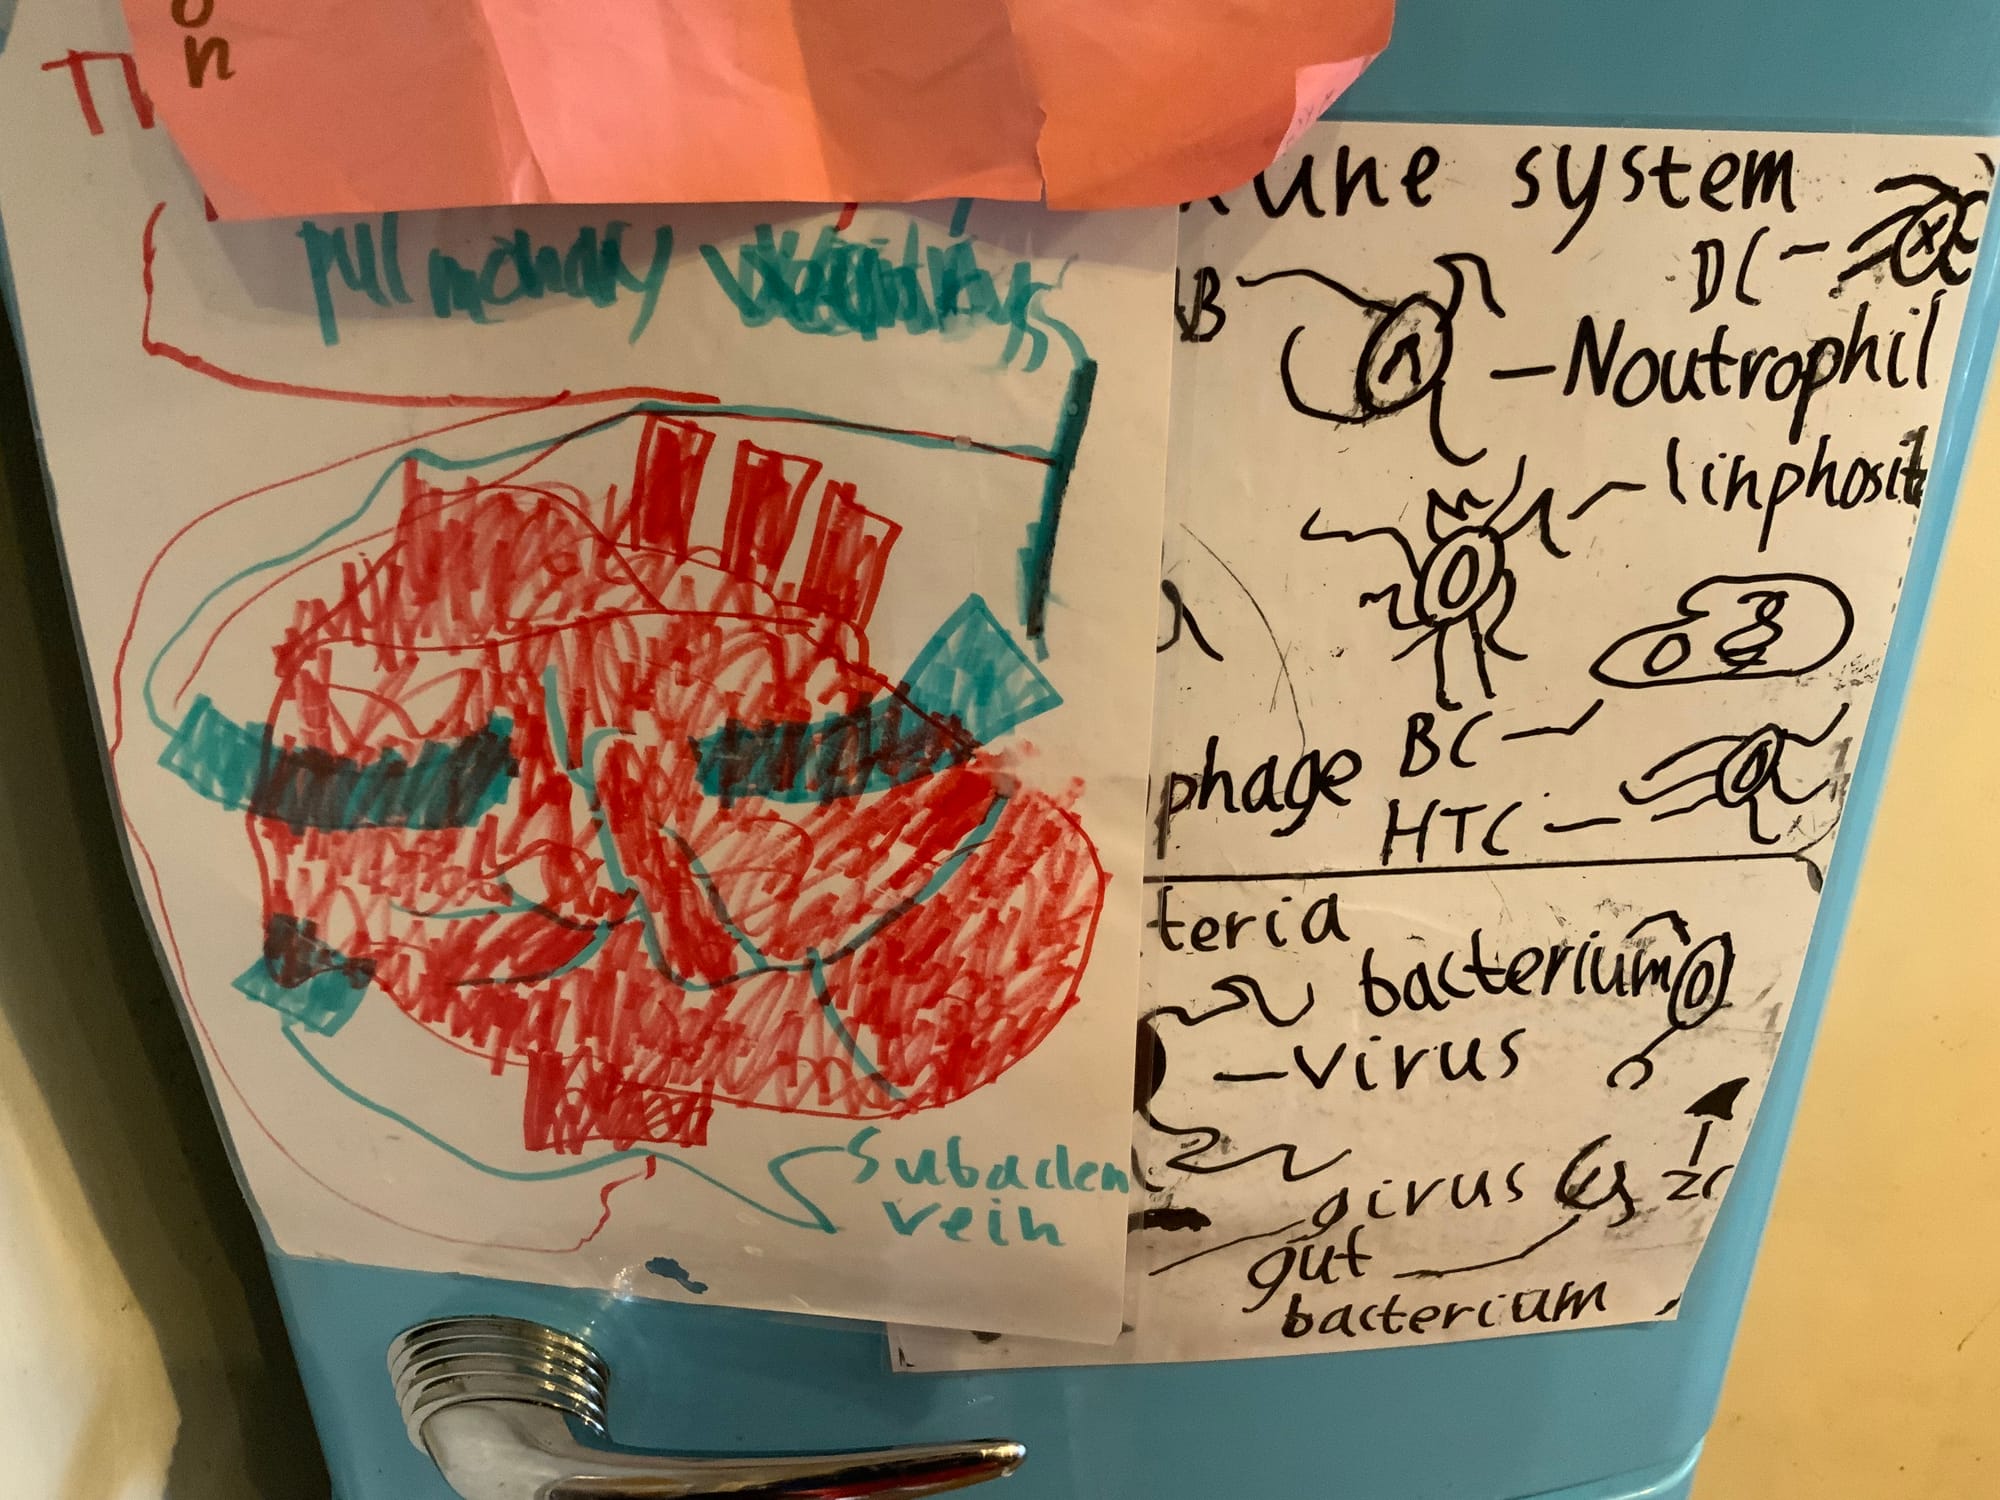 on
Th
pulmonary
subaclen
vein
une system
DC
B
Noutrophil
linphosit
BC
phage
HTC
teria
bacterium
virus
girus
gut
bacterium